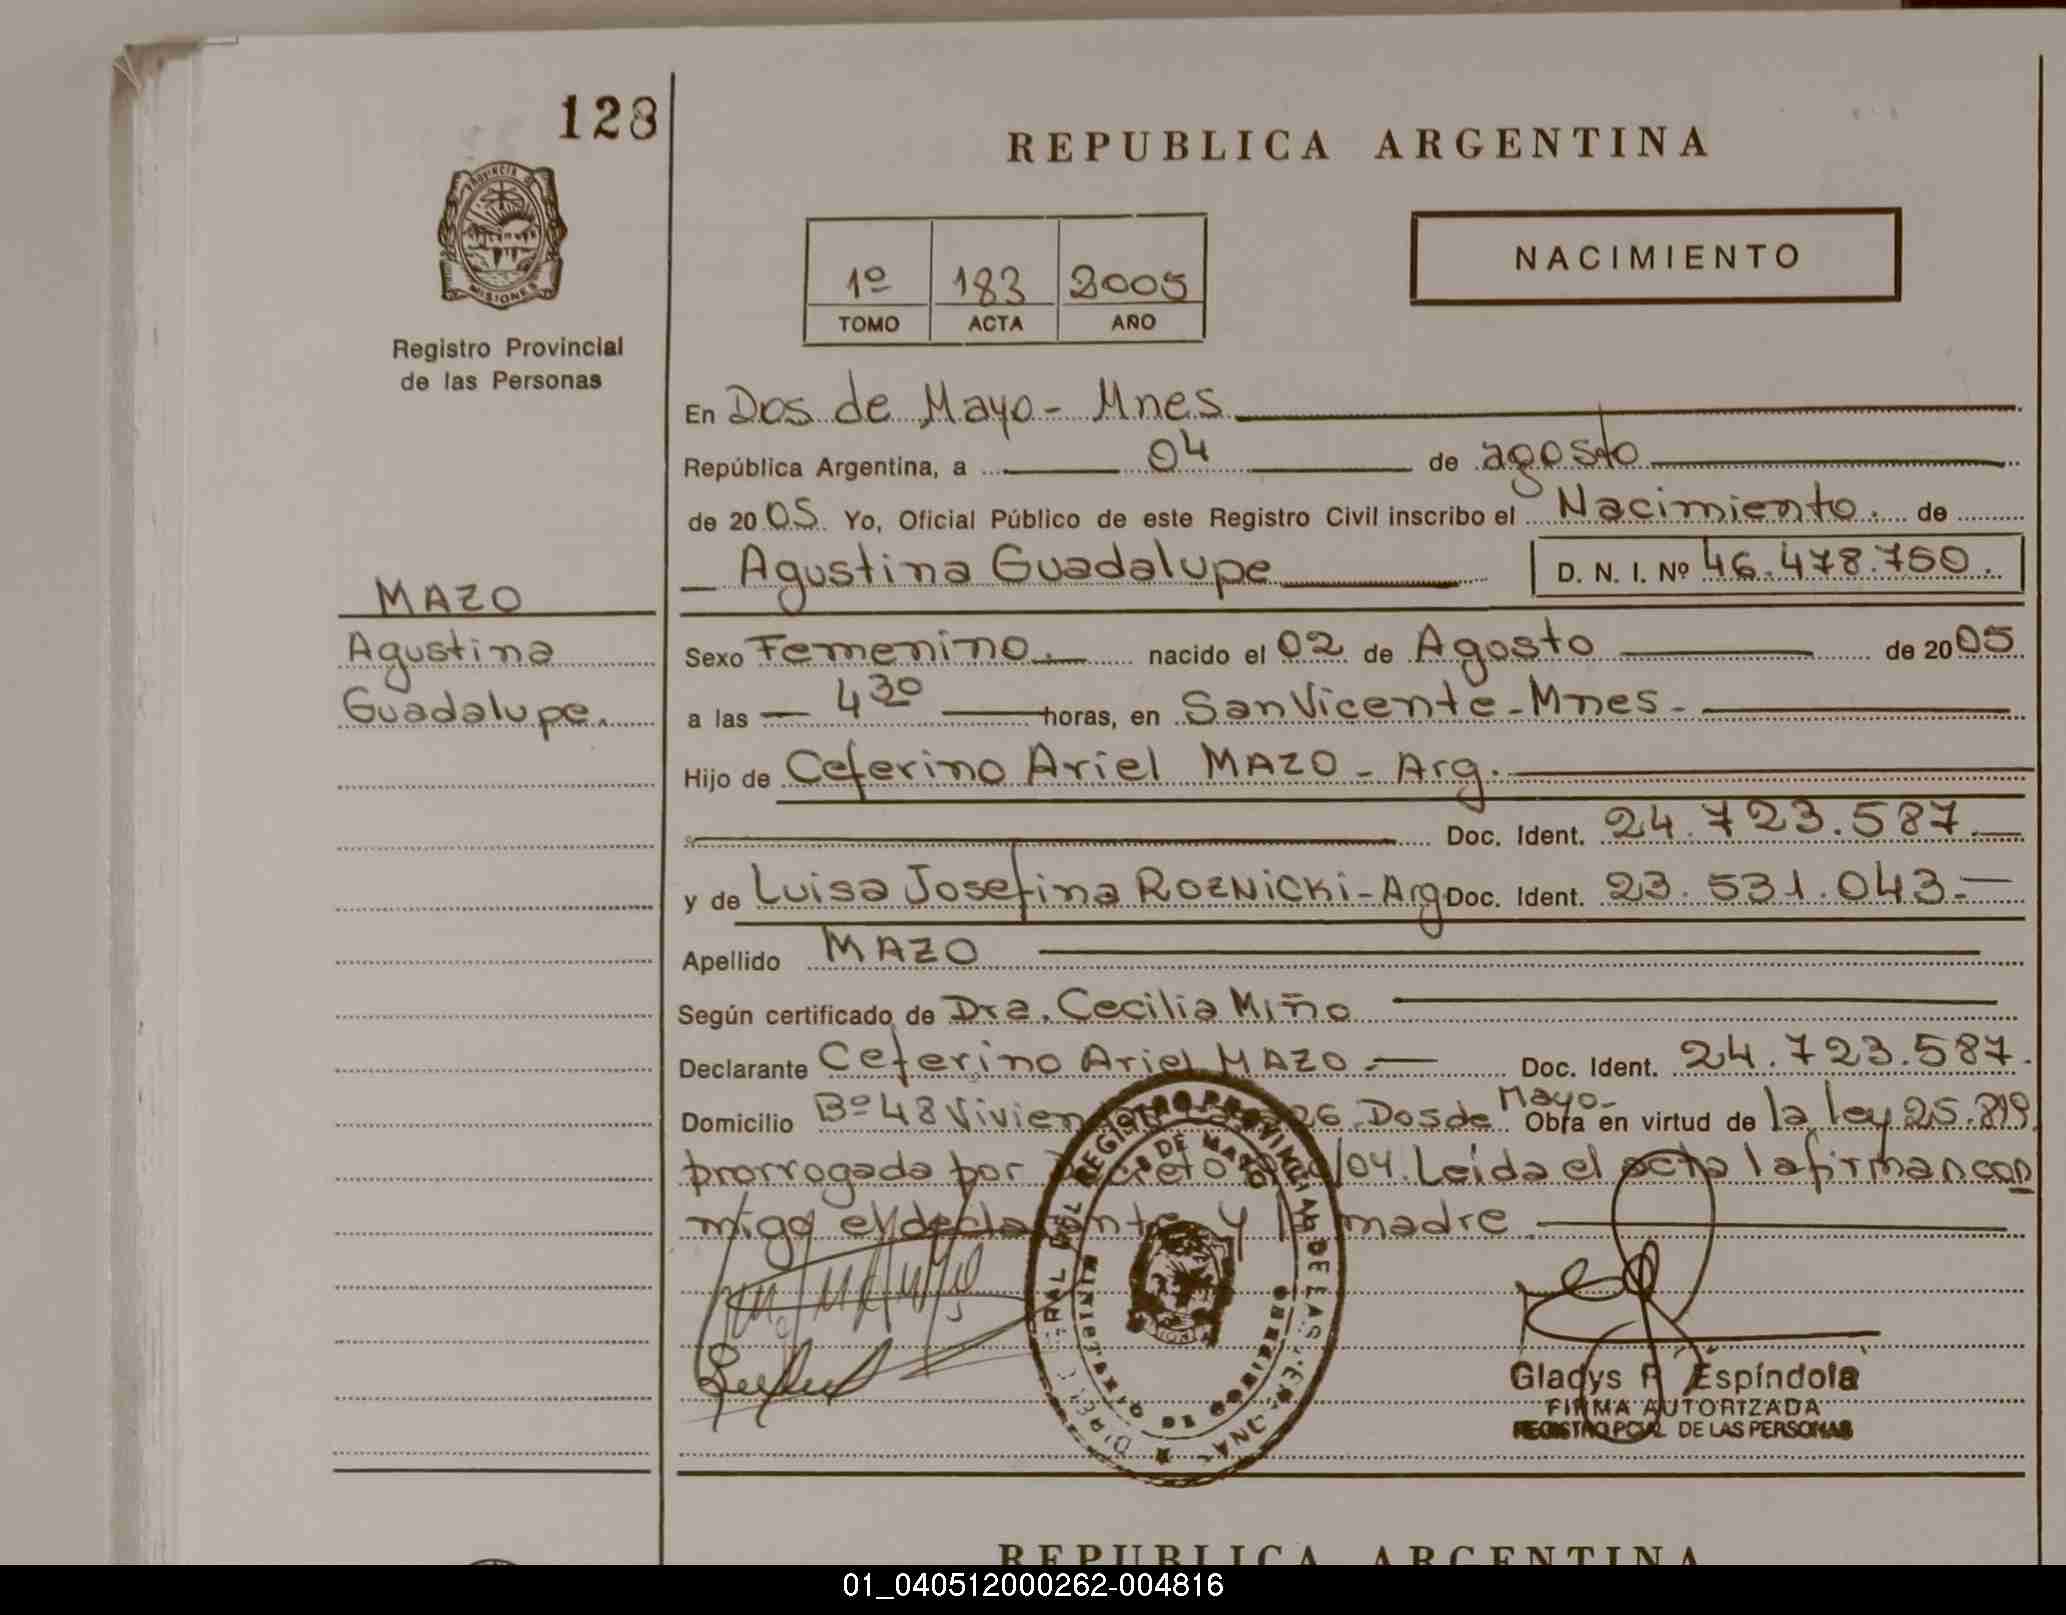 128
REPUBLICA ARGENTINA
PROVINCIA DE
MISIONES
Registro Provincial
de las Personas
1º 183 2005
TOMO ACTA AÑO
NACIMIENTO
En Dos de Mayo - Mnes
República Argentina, a 04 de agosto
de 2005. Yo, Oficial Público de este Registro Civil inscribo el Nacimiento. de
Agustina Guadalupe D. N. I. Nº 46.478.750.
MAZO
Agustina
Guadalupe.
Sexo Femenino. nacido el 02 de Agosto de 2005
a las 4 30 horas, en San Vicente - Mnes -
Hijo de Ceferino Ariel MAZO - Arg.
Doc. Ident. 24.723.587.
y de Luisa Josefina ROZNICKI - Arg Doc. Ident. 23.531.043.-
Apellido MAZO
Según certificado de Dra. Cecilia Miño
Declarante Ceferino Ariel MAZO.- Doc. Ident. 24.723.587.
Domicilio Bº 48 Vivien 26. Dos de Mayo - Obra en virtud de la ley 25.819
prorrogada por Decreto /04. Leída el acta la firman con
migo el declarante y la madre.
Gladys R. Espíndola
FIRMA AUTORIZADA
REGISTRO PCIAL DE LAS PERSONAS
REPUBLICA ARGENTINA
01_040512000262-004816